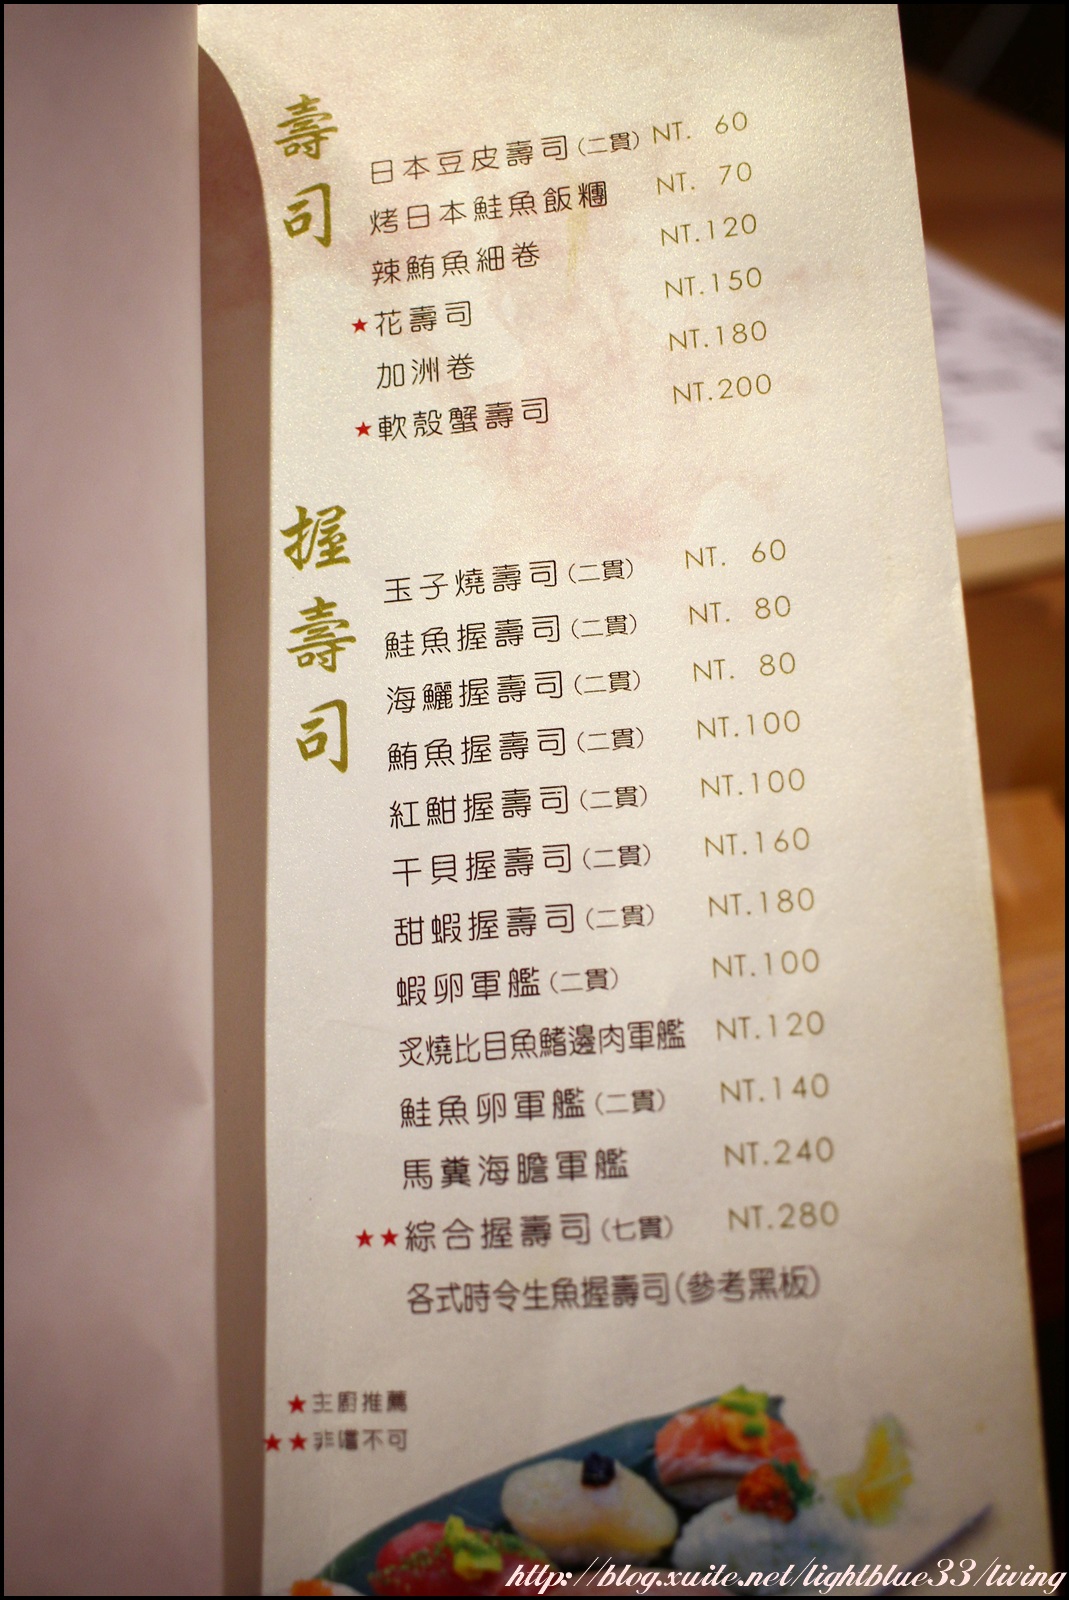 壽司
日本豆皮壽司(二貫) NT. 60
烤日本鮭魚飯糰 NT. 70
辣鮪魚細卷 NT.120
★花壽司 NT.150
加洲卷 NT.180
★軟殼蟹壽司 NT.200
握壽司
玉子燒壽司(二貫) NT. 60
鮭魚握壽司(二貫) NT. 80
海鱺握壽司(二貫) NT. 80
鮪魚握壽司(二貫) NT.100
紅魽握壽司(二貫) NT.100
干貝握壽司(二貫) NT.160
甜蝦握壽司(二貫) NT.180
蝦卵軍艦(二貫) NT.100
炙燒比目魚鰭邊肉軍艦 NT.120
鮭魚卵軍艦(二貫) NT.140
馬糞海膽軍艦 NT.240
★★綜合握壽司(七貫) NT.280
各式時令生魚握壽司(參考黑板)
★主廚推薦
★★非嚐不可
http://blog.xuite.net/lightblue33/living